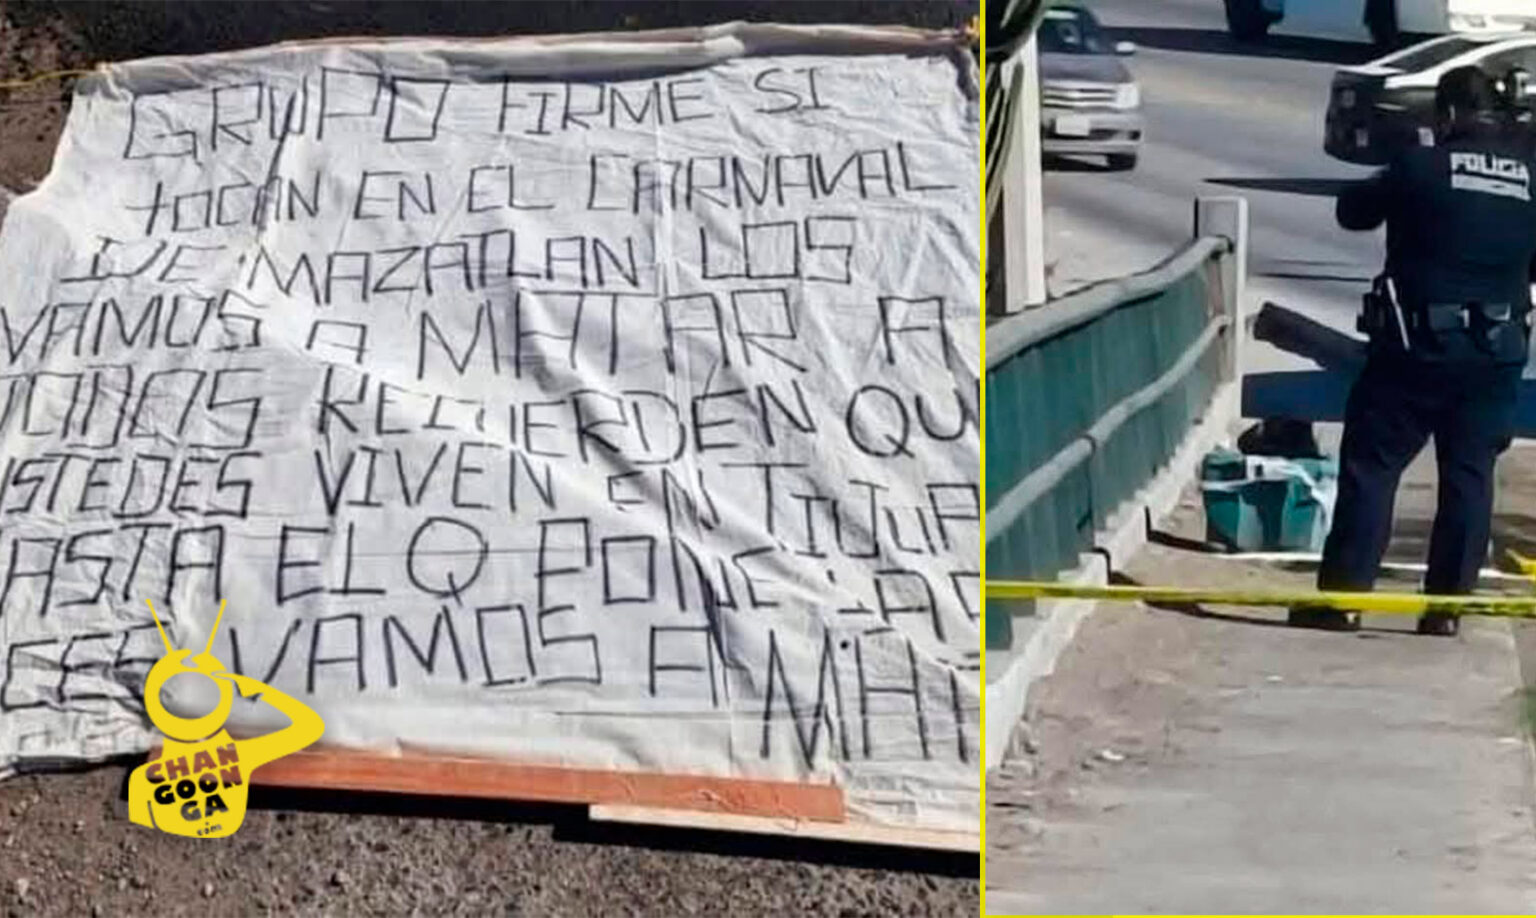 GRUPO FIRME SI
tOCAN EN EL CARNAVAL
DE MAZATLAN LOS
VAMOS A MATAR A
TODOS RECUERDEN QU
USTEDES VIVEN EN TIJUA
ASTA EL Q PONE
CES VAMOS A MA
CHAN
GOON
GA
.com
POLICIA